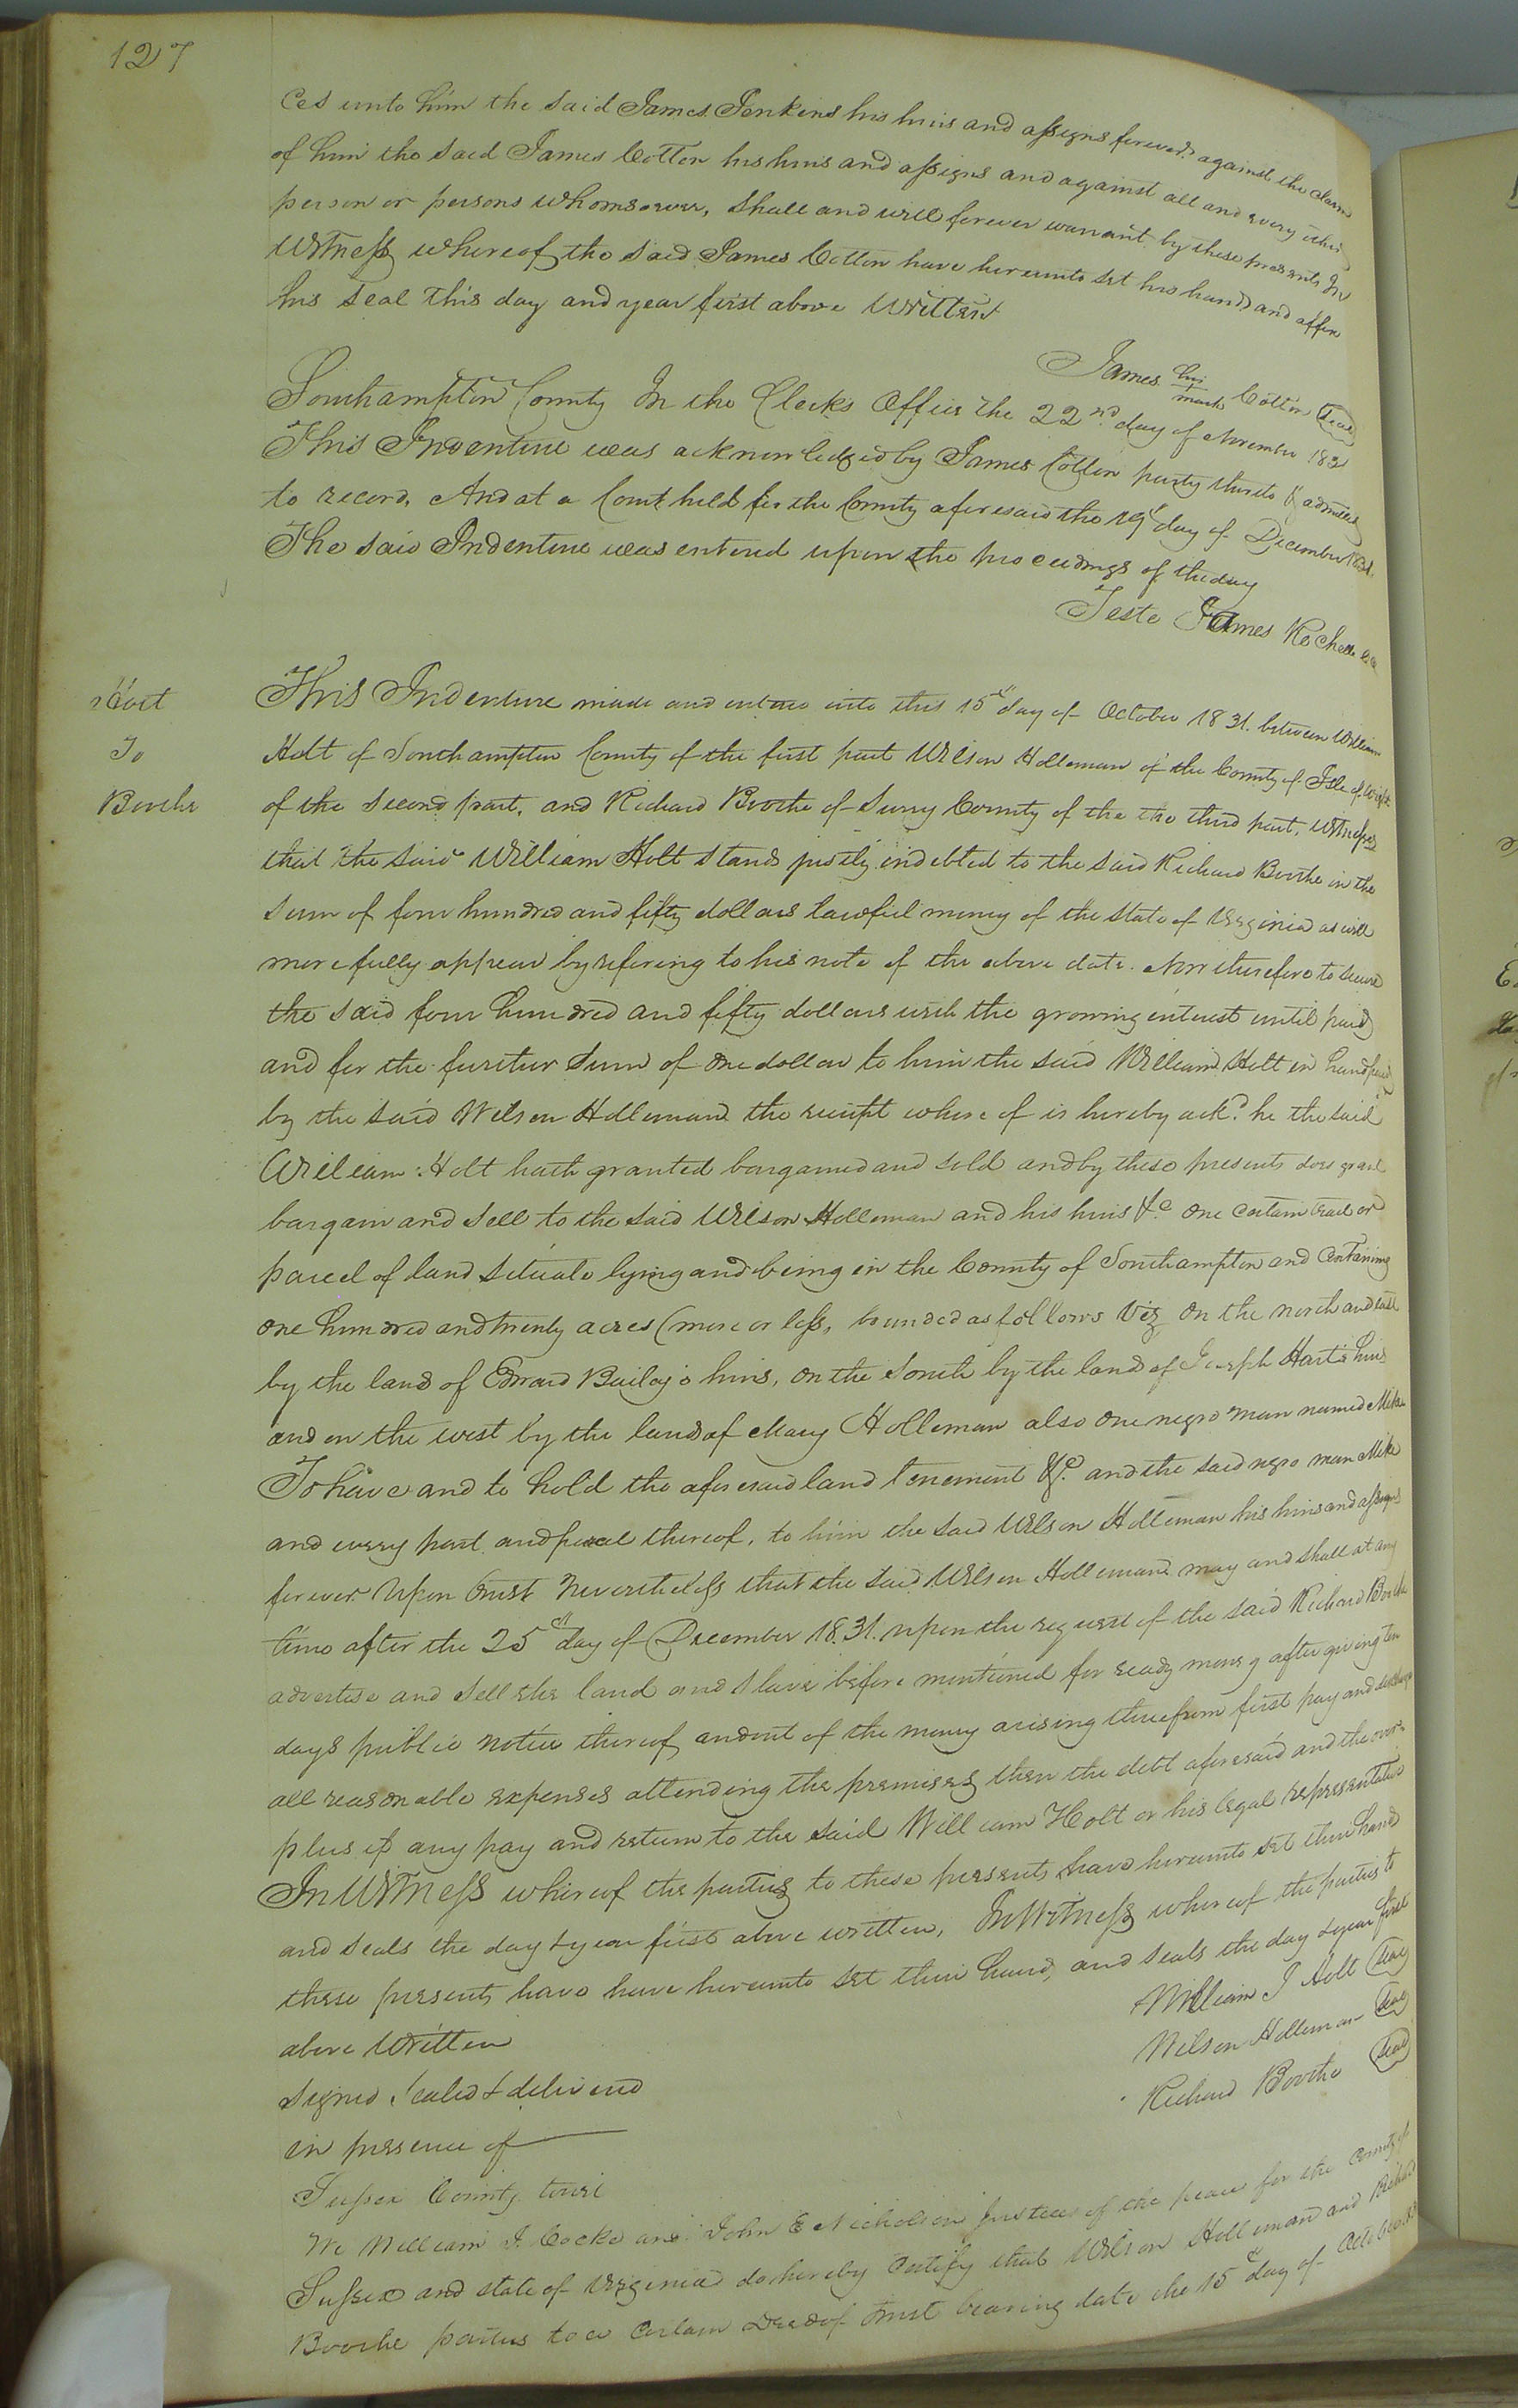 127
ces unto him the said James Jenkins his heirs and assigns forever against the claim
of him the said James Cotton his heirs and assigns and against all and every other
person or persons whomsoever, shall and will forever warrant by these presents In
Witness whereof the said James Cotton have hereunto set his hand and affix
his seal this day and year first above Written
James his mark Cotton Seal
Southampton County In the Clerks Office the 22nd day of November 1831
This Indenture was acknowledged by James Cotton party thereto & admitted
to record, And at a Court held for the County aforesaid the 19th day of December 1831.
The said Indenture was entered upon the proceedings of the day
Teste James Rochelle
Holt
To
Boothe
This Indenture made and entred into this 15th day of October 1831. between William
Holt of Southampton County of the first part Wilson Holleman of the County of Isle of Wight
of the second part, and Richard Boothe of Surry County of the the third part, Witnesses
that the said William Holt stands justly indebted to the said Richard Boothe in the
sum of four hundred and fifty dollars lawful money of the state of Virginia as will
more fully appear by refering to his note of the above date. Now therefore to secure
the said four hundred and fifty dollars with the growing interest until paid
and for the further sum of one dollar to him the said William Holt in hand paid
by the said Wilson Holleman the receipt where of is hereby ackd. he the said
William Holt hath granted bargained and sold and by these presents does grant
bargain and sell to the said Wilson Holleman and his heirs &c one certain tract or
parcel of land situate lying and being in the County of Southampton and Containing
one hundred and twenty acres (more or less, bounded as follows Viz, On the north and east
by the land of Edward Bailey's heirs, on the South by the land of Joseph Hart's heirs
and on the west by the land of Mary Holleman also one negro man named Mike
To have and to hold the aforesaid land tenement &c. and the said negro man Mike
and every part and parcel thereof, to him the said Wilson Holleman his heirs and assigns
forever. Upon trust Nevertheless that the said Wilson Holleman may and shall at any
time after the 25th day of December 1831. upon the request of the said Richard Boothe
advertise and sell the land and slave before mentioned for ready money after giving ten
days public notice thereof, and out of the money arising therefrom first pay and discharge
all reasonable expenses attending the premises then the debt aforesaid and the over-
plus if any pay and return to the said William Holt or his legal representatives
In Witness whereof the parties to these presents have hereunto set their hands
and seals the day & year first above written, In Witness whereof the parties to
these presents have have hereunto set their hand, and seals the day & year first
above Written
William J Holt Seal
Wilson Holleman Seal
Richard Boothe Seal
Signed, Sealed & delivered
in presence of
Sussex County towit
We William I. Cocke and John E Nicholson Justices of the peace for the County of
Sussex and state of Virginia do hereby Certify that Wilson Holleman and Richard
Boothe parties to a certain Deed of trust bearing date the 15th day of October